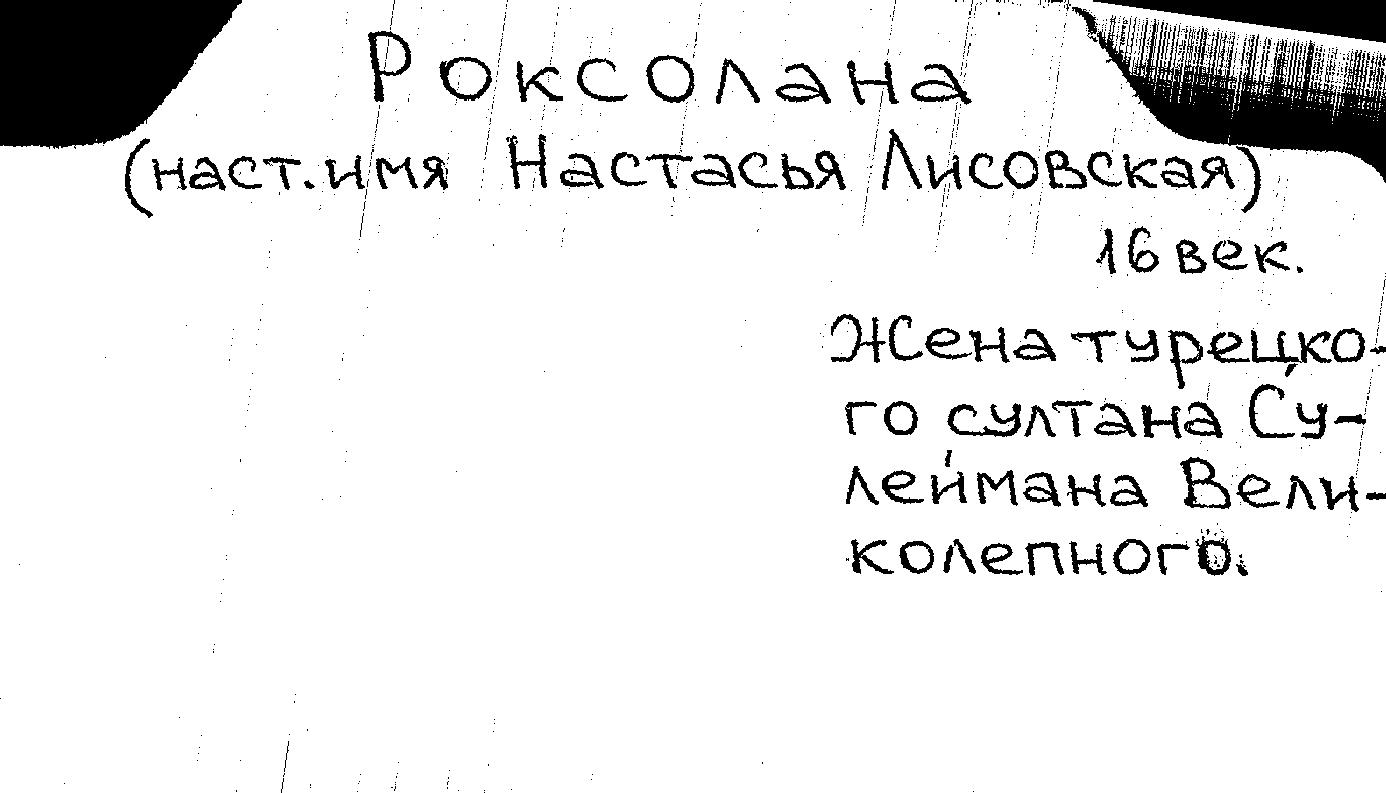 Роксолана
(наст. имя Настасья Лисовская)
16 век.
Жена турецко-
го султана Су-
леймана Вели-
колепного.